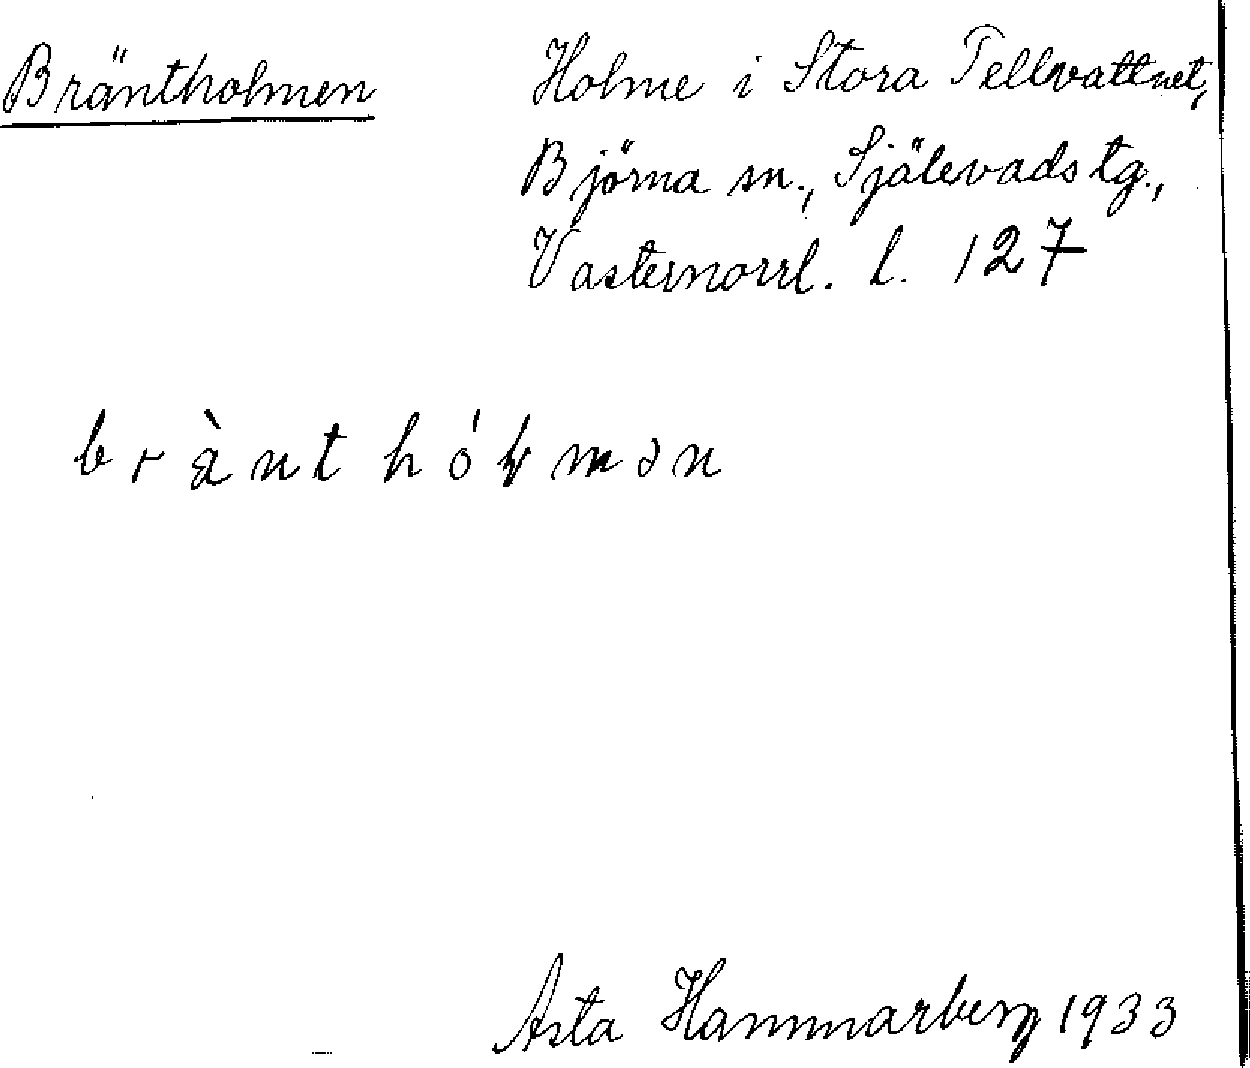 Bräntholmen
Holme i Stora Tellvattnet,
Björna sn., Själevads tg.,
Vasternorrl. l. 127
brànt hóɫmən
Asta Hammarberg 1933